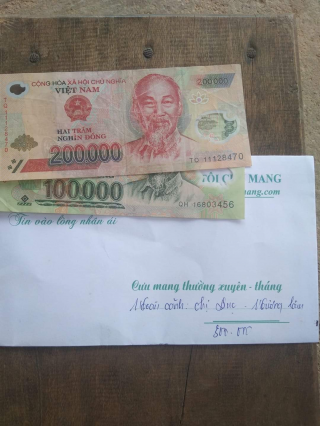 CỘNG HÒA XÃ HỘI CHỦ NGHĨA
VIỆT NAM
200000
HAI TRĂM
NGHÌN ĐỒNG
200.000
TO 11128470
100.000
GH 16803456
MANG
mang.com
Tin vào lòng nhân ái
Cưu mang thường xuyên - tháng
cảnh chị
300.000